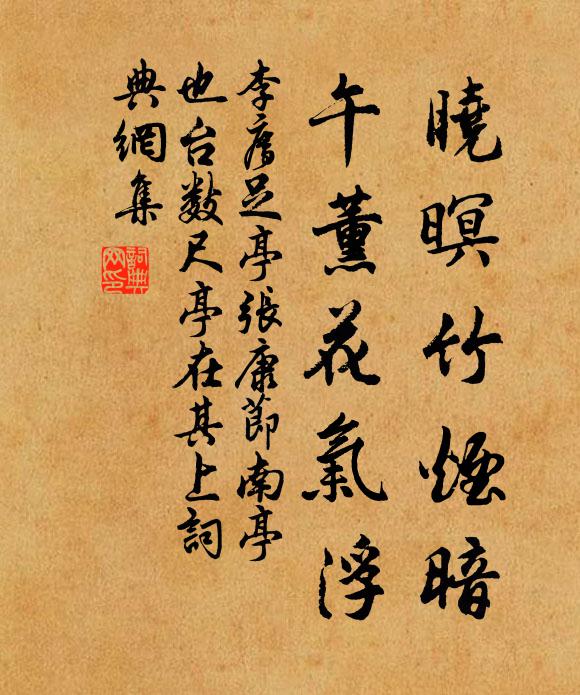 曉暝竹煙暗
午薰花氣浮
李膺足亭張廉節南亭
也台數尺亭在其上詞
典網集
詞典網印